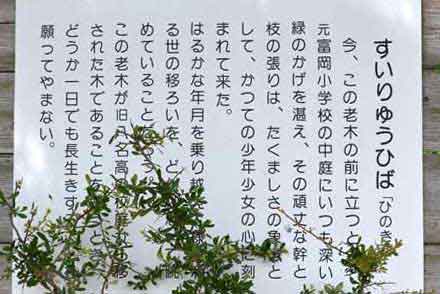 すいりゅうひば「ひのき
今、この老木の前に立つと
元富岡小学校の中庭にいつも深い
緑のかげを湛え、その頑丈な幹と
枝の張りは、たくましさの象
して、かつての少年少女の心に刻
まれて来た。
はるかな年月を乗り越
る世の移ろいを、ど
めていることな
この老木が旧八名高
された木であること
どうか一日でも長生きす
願ってやまない。